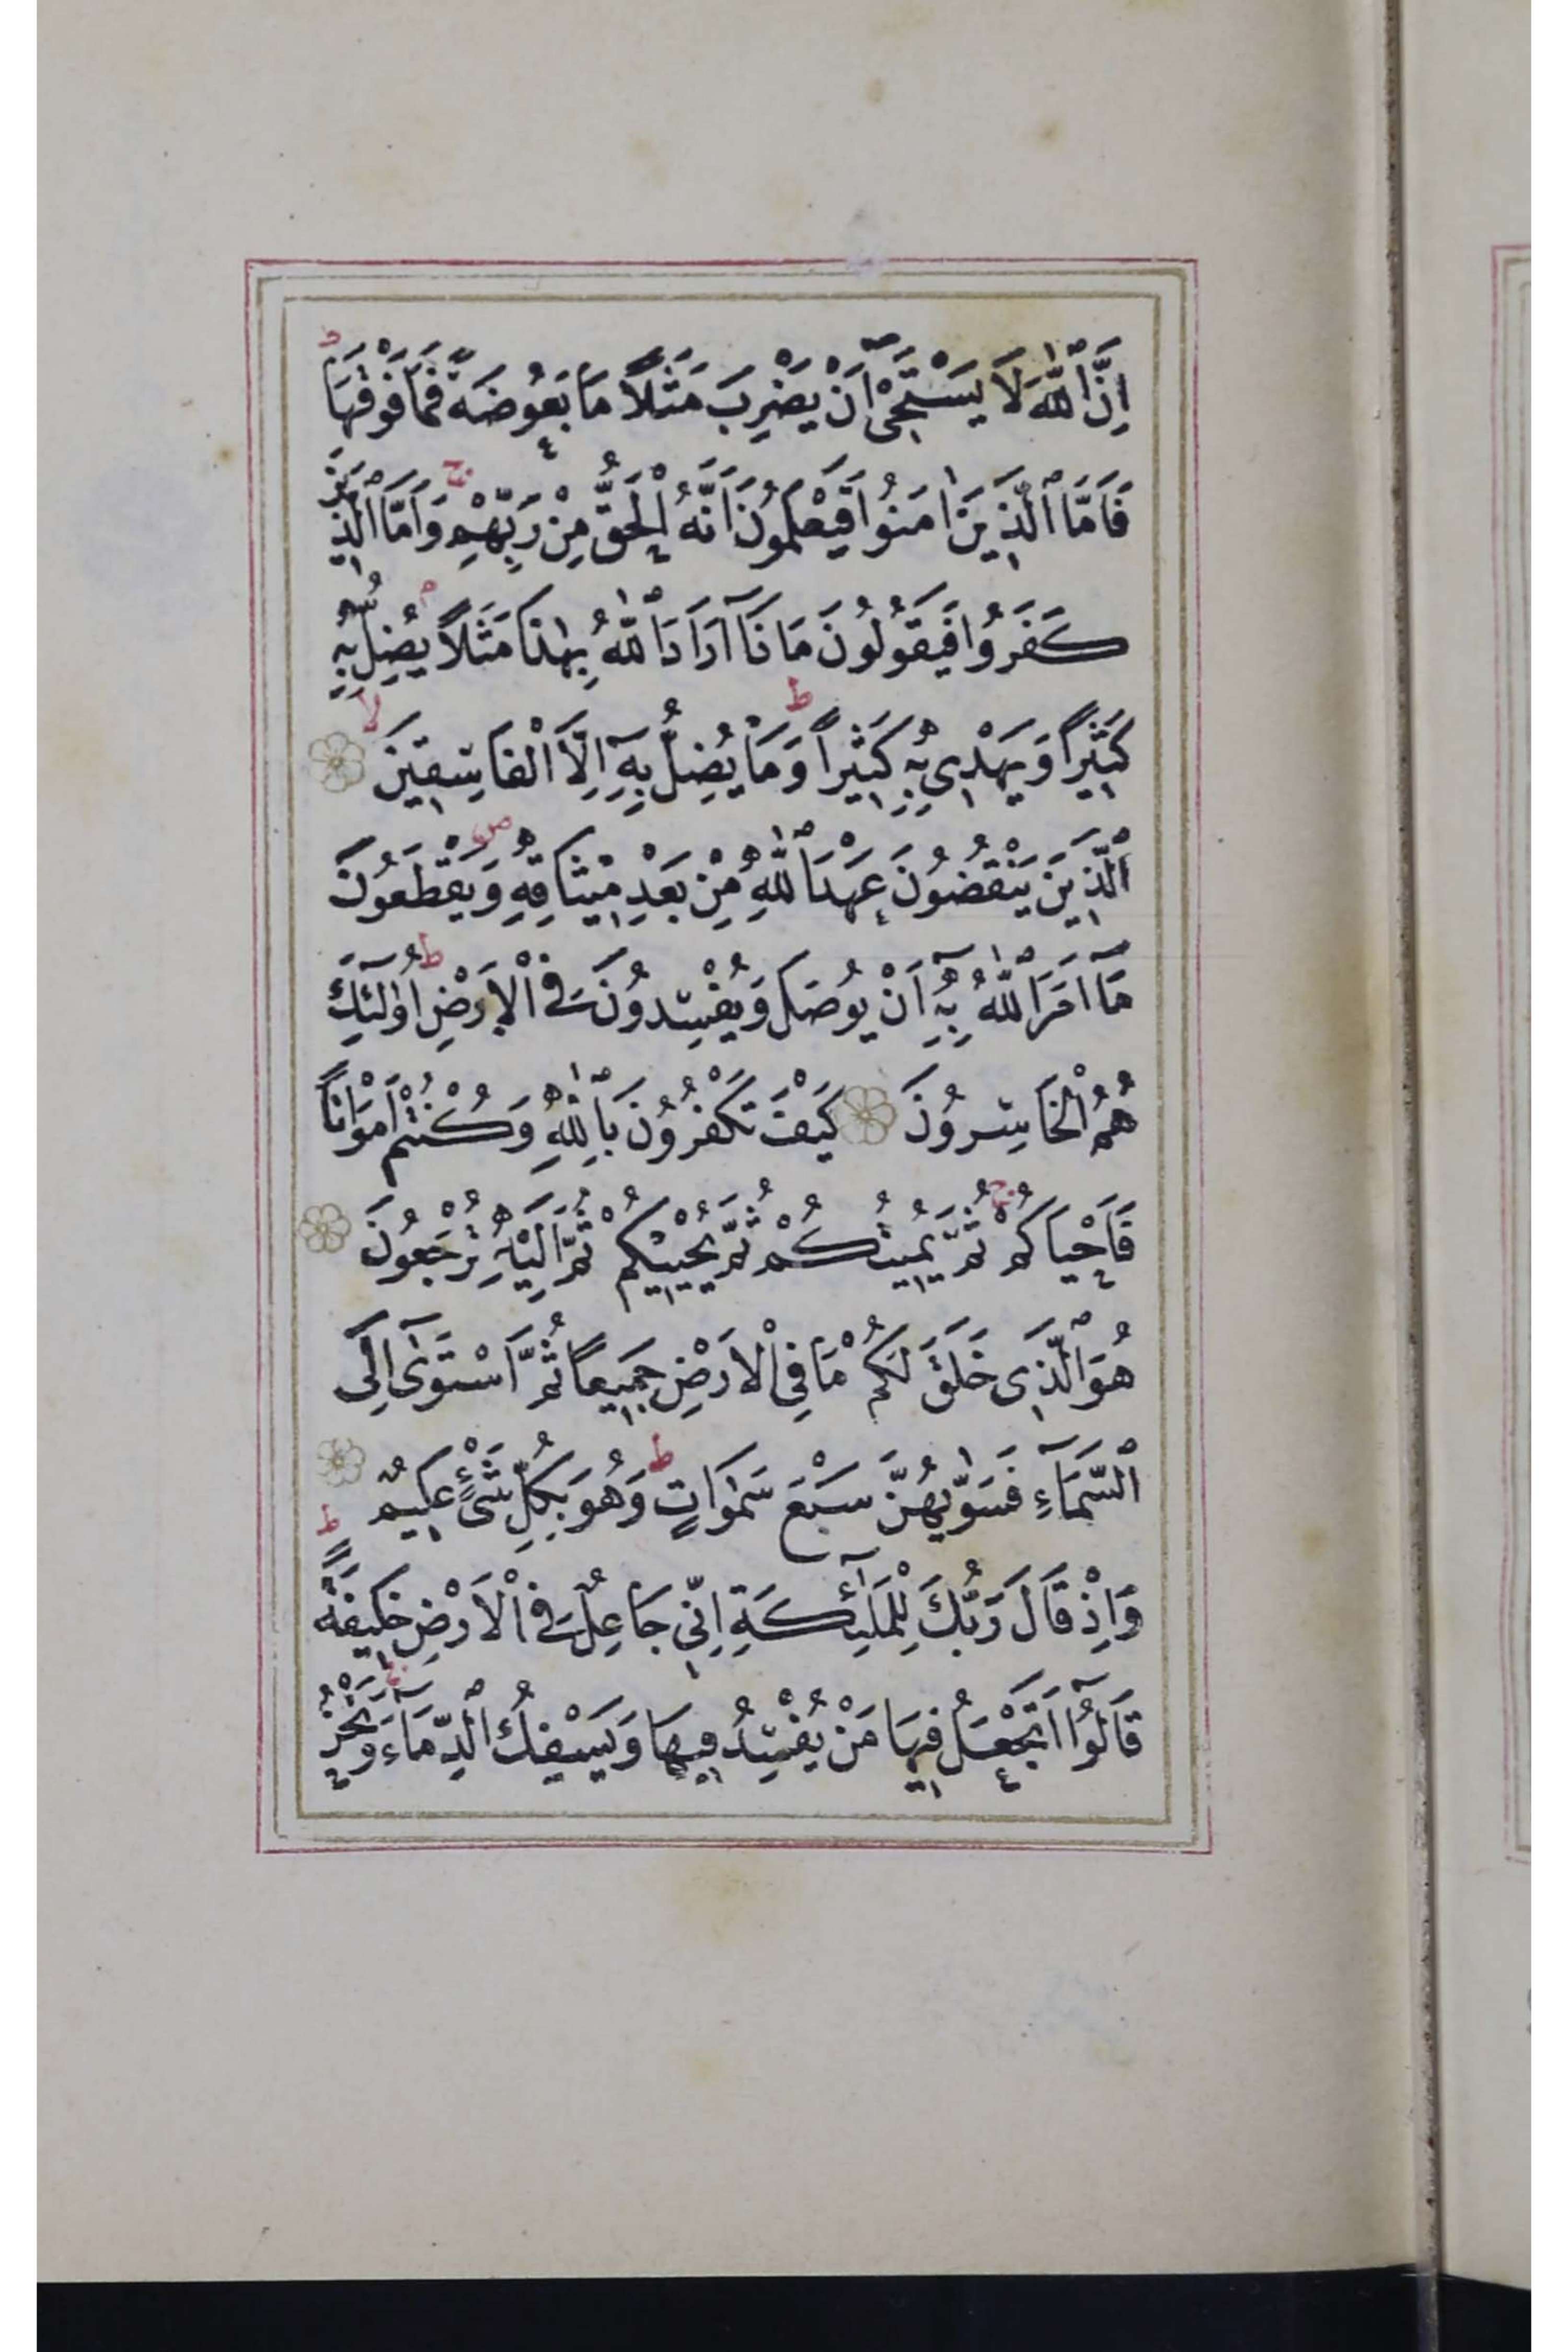 اِنَّ ٱللّٰهَ لَا يَسْتَحْيٖٓ اَنْ يَضْرِبَ مَثَلًا مَا بَعُوضَةً فَمَا فَوْقَهَا ط
فَاَمَّا ٱلَّذِينَ اٰمَنُوا فَيَعْلَمُونَ اَنَّهُ ٱلْحَقُّ مِنْ رَبِّهِمْ ج وَاَمَّا ٱلَّذِينَ
كَفَرُوا فَيَقُولُونَ مَاذَٓا اَرَادَ ٱللّٰهُ بِهٰذَا مَثَلًا م يُضِلُّ بِهٖ
كَثِيرًا وَيَهْدِى بِهٖ كَثِيرًا ط وَمَا يُضِلُّ بِهٖٓ اِلَّا ٱلْفَاسِقِينَ لا
ٱلَّذِينَ يَنْقُضُونَ عَهْدَ ٱللّٰهِ مِنْ بَعْدِ مِيثَاقِهٖ ص وَيَقْطَعُونَ
مَٓا اَمَرَ ٱللّٰهُ بِهٖٓ اَنْ يُوصَلَ وَيُفْسِدُونَ فِى ٱلْاَرْضِ ط اُولٰٓئِكَ
هُمُ ٱلْخَاسِرُونَ كَيْفَ تَكْفُرُونَ بِٱللّٰهِ وَكُنْتُمْ اَمْوَاتًا
فَاَحْيَاكُمْ ج ثُمَّ يُمِيتُكُمْ ثُمَّ يُحْيِيكُمْ ثُمَّ اِلَيْهِ تُرْجَعُونَ
هُوَ ٱلَّذِى خَلَقَ لَكُمْ مَا فِى ٱلْاَرْضِ جَمِيعًا ثُمَّ ٱسْتَوٰٓى اِلَى
ٱلسَّمَٓاءِ فَسَوّٰيهُنَّ سَبْعَ سَمٰوَاتٍ ط وَهُوَ بِكُلِّ شَىْءٍ عَلِيمٌ
وَاِذْ قَالَ رَبُّكَ لِلْمَلٰٓئِكَةِ اِنِّى جَاعِلٌ فِى ٱلْاَرْضِ خَلِيفَةً ط
قَالُٓوا اَتَجْعَلُ فِيهَا مَنْ يُفْسِدُ فِيهَا وَيَسْفِكُ ٱلدِّمَٓاءَ ج وَنَحْنُ